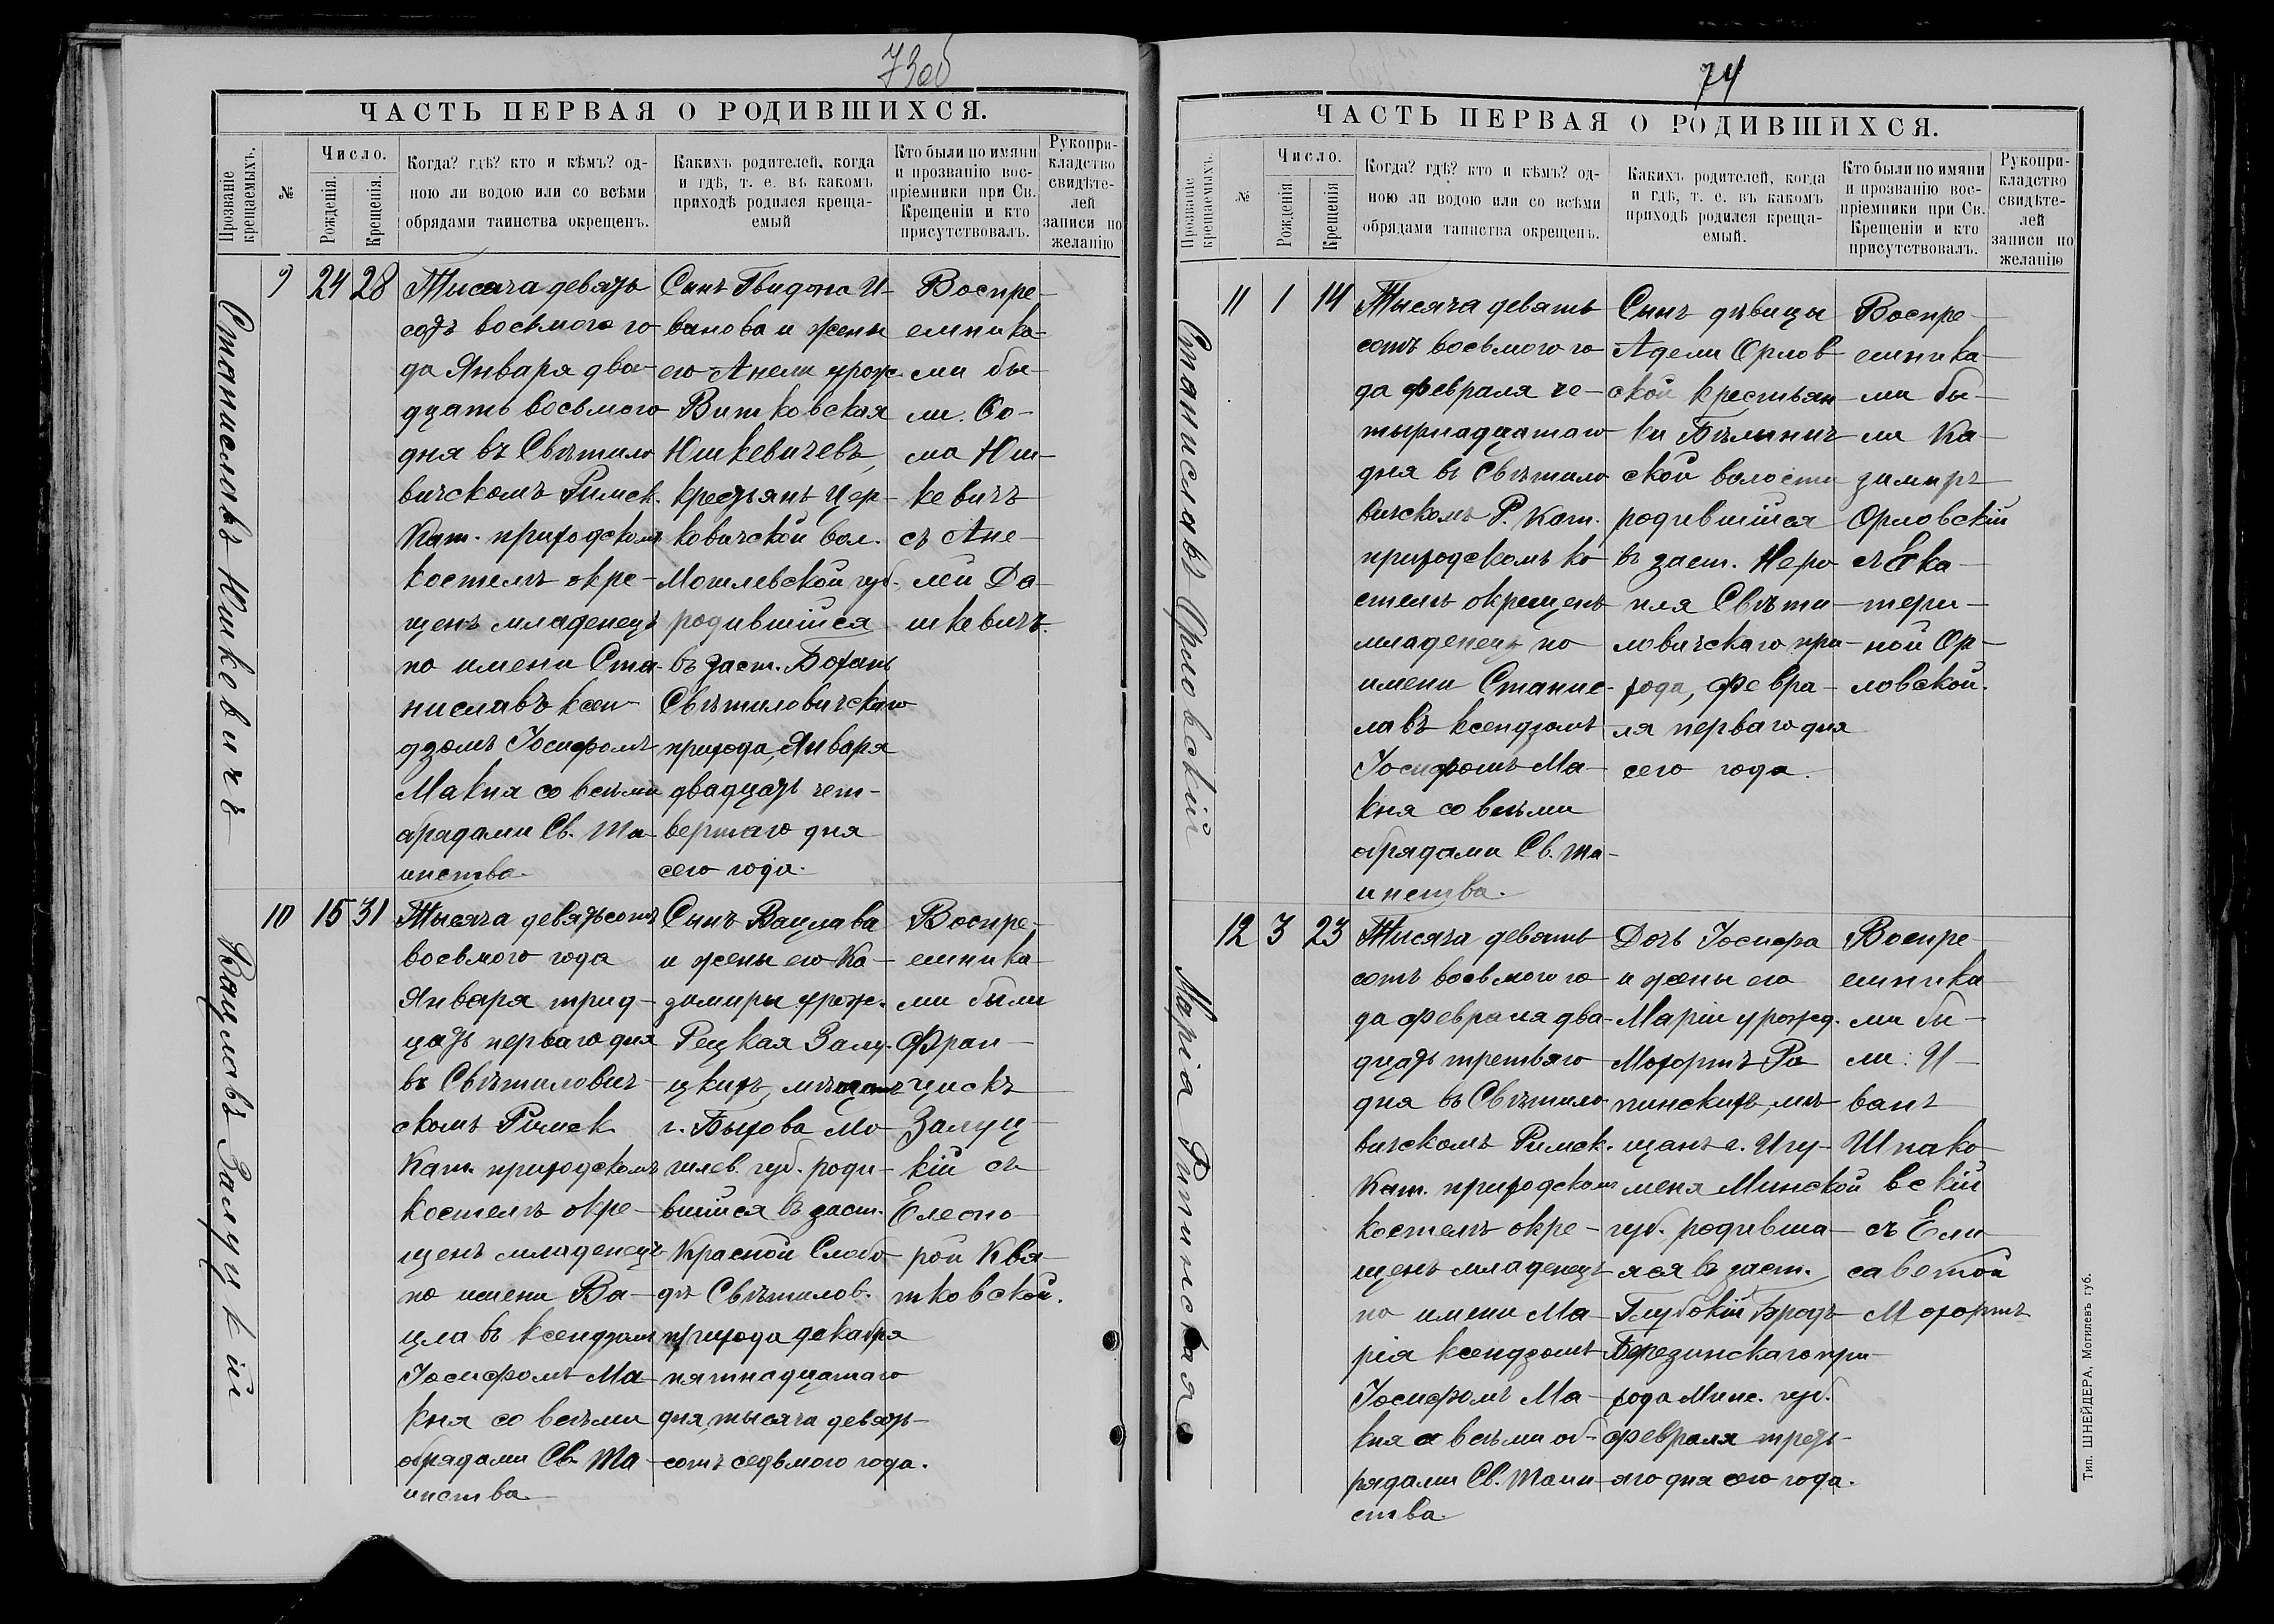 73об
ЧАСТЬ ПЕРВАЯ О РОДИВШИХСЯ.
Прозваніе крещаемыхъ.
№
Число.
Рожденія.
Крещенія.
Когда? гдѣ? кто и кѣмъ? од-
ною ли водою или со всѣми
обрядами таинства окрещенъ.
Какихъ родителей, когда
и гдѣ, т. е. въ какомъ
приходѣ родился креща-
емый
Кто были по имяни
и прозванію вос-
пріемники при Св.
Крещеніи и кто
присутствовалъ.
Рукопри-
кладство
свидѣте-
лей
записи по
желанію
Станиславъ Юшковичъ
9
24
28
Тысяча девять
сотъ восьмого го
да Января два-
дцать восьмого
дня въ Свѣтило
вичскомъ Римск.
Кат. приходскомъ
костелѣ окре-
щенъ младенецъ
по имени Ста-
ниславъ ксен-
дзомъ Іосифомъ
Макня со всѣми
абрядами Св. Та-
инства.
Сынъ Гвидона И-
ванова и жены
его Анели урож.
Витковская
Юшкевичевъ,
крестьянъ Цер-
ковичской вол.
Могилевской губ.
родившійся
въ заст. Бохань
Свѣтиловичскаго
прихода, Января
двадцать чет-
вертаго дня
сего года.
Воспре-
емника-
ми бы-
ли: Ѳо-
ма Юш-
кевичъ
съ Ане-
лей Да-
шкевичъ.
Вацлавъ Залуцкій
10
15
31
Тысяча девятьсотъ
восьмого года
Января трид-
цать перваго дня
въ Свѣтилович-
скомъ Римск.
Кат. приходскомъ
костелѣ окре-
щенъ младенецъ
по имени Ва-
цлавъ ксендзомъ
Іосифомъ Ма-
кня со всѣми
обрядами Св. Та-
инства.
Сынъ Вацлава
и жены его Ка-
зимиры урож.
Рецкая Залу-
цкихъ, мѣщанъ
г. Быхова Мо-
гилев. губ. роди-
вшійся въ заст.
Красной Слобо-
дѣ Свѣтилов.
прихода декабря
пятнадцатаго
дня, тысяча девять-
сотъ седьмого года.
Воспре-
емника-
ми были
Фран-
цискъ
Залуц-
кій съ
Елеоно-
рой Квя-
тковской.
74
ЧАСТЬ ПЕРВАЯ О РОДИВШИХСЯ.
Прозваніе крещаемыхъ.
№
Число.
Рожденія
Крещенія
Когда? гдѣ? кто и кѣмъ? од-
ною ли водою или со всѣми
обрядами таинства окрещенъ.
Какихъ родителей, когда
и гдѣ, т. е. въ какомъ
приходѣ родился креща-
емый.
Кто были по имяни
и прозванію вос-
пріемники при Св.
Крещеніи и кто
присутствовалъ.
Рукопри-
кладство
свидѣте-
лей
записи по
желанію
Станиславъ Орловскій
11
1
14
Тысяча девять
сотъ восьмого го
да февраля че-
тырнадцатаго
дня въ Свѣтило
вичскомъ Р. Кат.
приходскомъ ко
стелѣ окрещенъ
младенецъ по
имени Станис-
лавъ ксендзомъ
Іосифомъ Ма-
кня со всѣми
обрядами Св. Та-
инства.
Сынъ дѣвицы
Адели Орлов-
ской крестьян-
ки Бѣлынич-
ской волости
родившійся
въ заст. Неро
пля Свѣти-
ловичскаго при-
хода, Февра-
ля перваго дня
сего года.
Воспре-
емника-
ми бы-
ли Ка-
зимиръ
Орловскій
съ Ека-
тери-
ной Ор-
ловской.
Марія Рапинская
12
3
23
Тысяча девять
сотъ восьмого го-
да февраля два-
дцать третьяго
дня въ Свѣтило
вичскомъ Римск.
Кат. приходскомъ
костелѣ окре-
щенъ младенецъ
по имени Ма-
рія ксендзомъ
Іосифомъ Ма-
кня со всѣми об-
рядами Св. Таин-
ства.
Дочь Іосифа
и жены его
Маріи урожд.
Мохортъ Ра
пинскихъ, мѣ-
щанъ г. Игу-
меня Минской
губ. родивша-
яся въ заст.
Глубокій Бродъ
Березинскаго при-
хода Минс. губ.
февраля треть-
яго дня сего года.
Воспре-
емника-
ми бы-
ли: И-
ванъ
Шпако-
вскій
съ Ели-
саветой
Мохортъ
Тип. ШНЕЙДЕРА, Могилевъ губ.